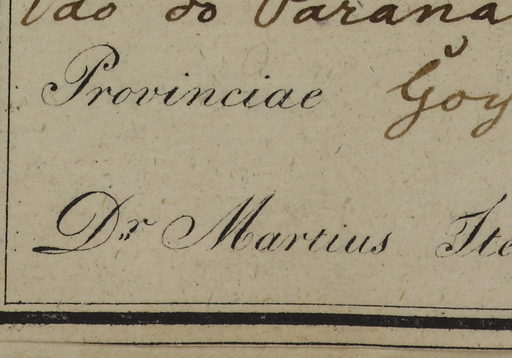 Vão do Paranã
Provinciae Goy
Dr Martius Ite